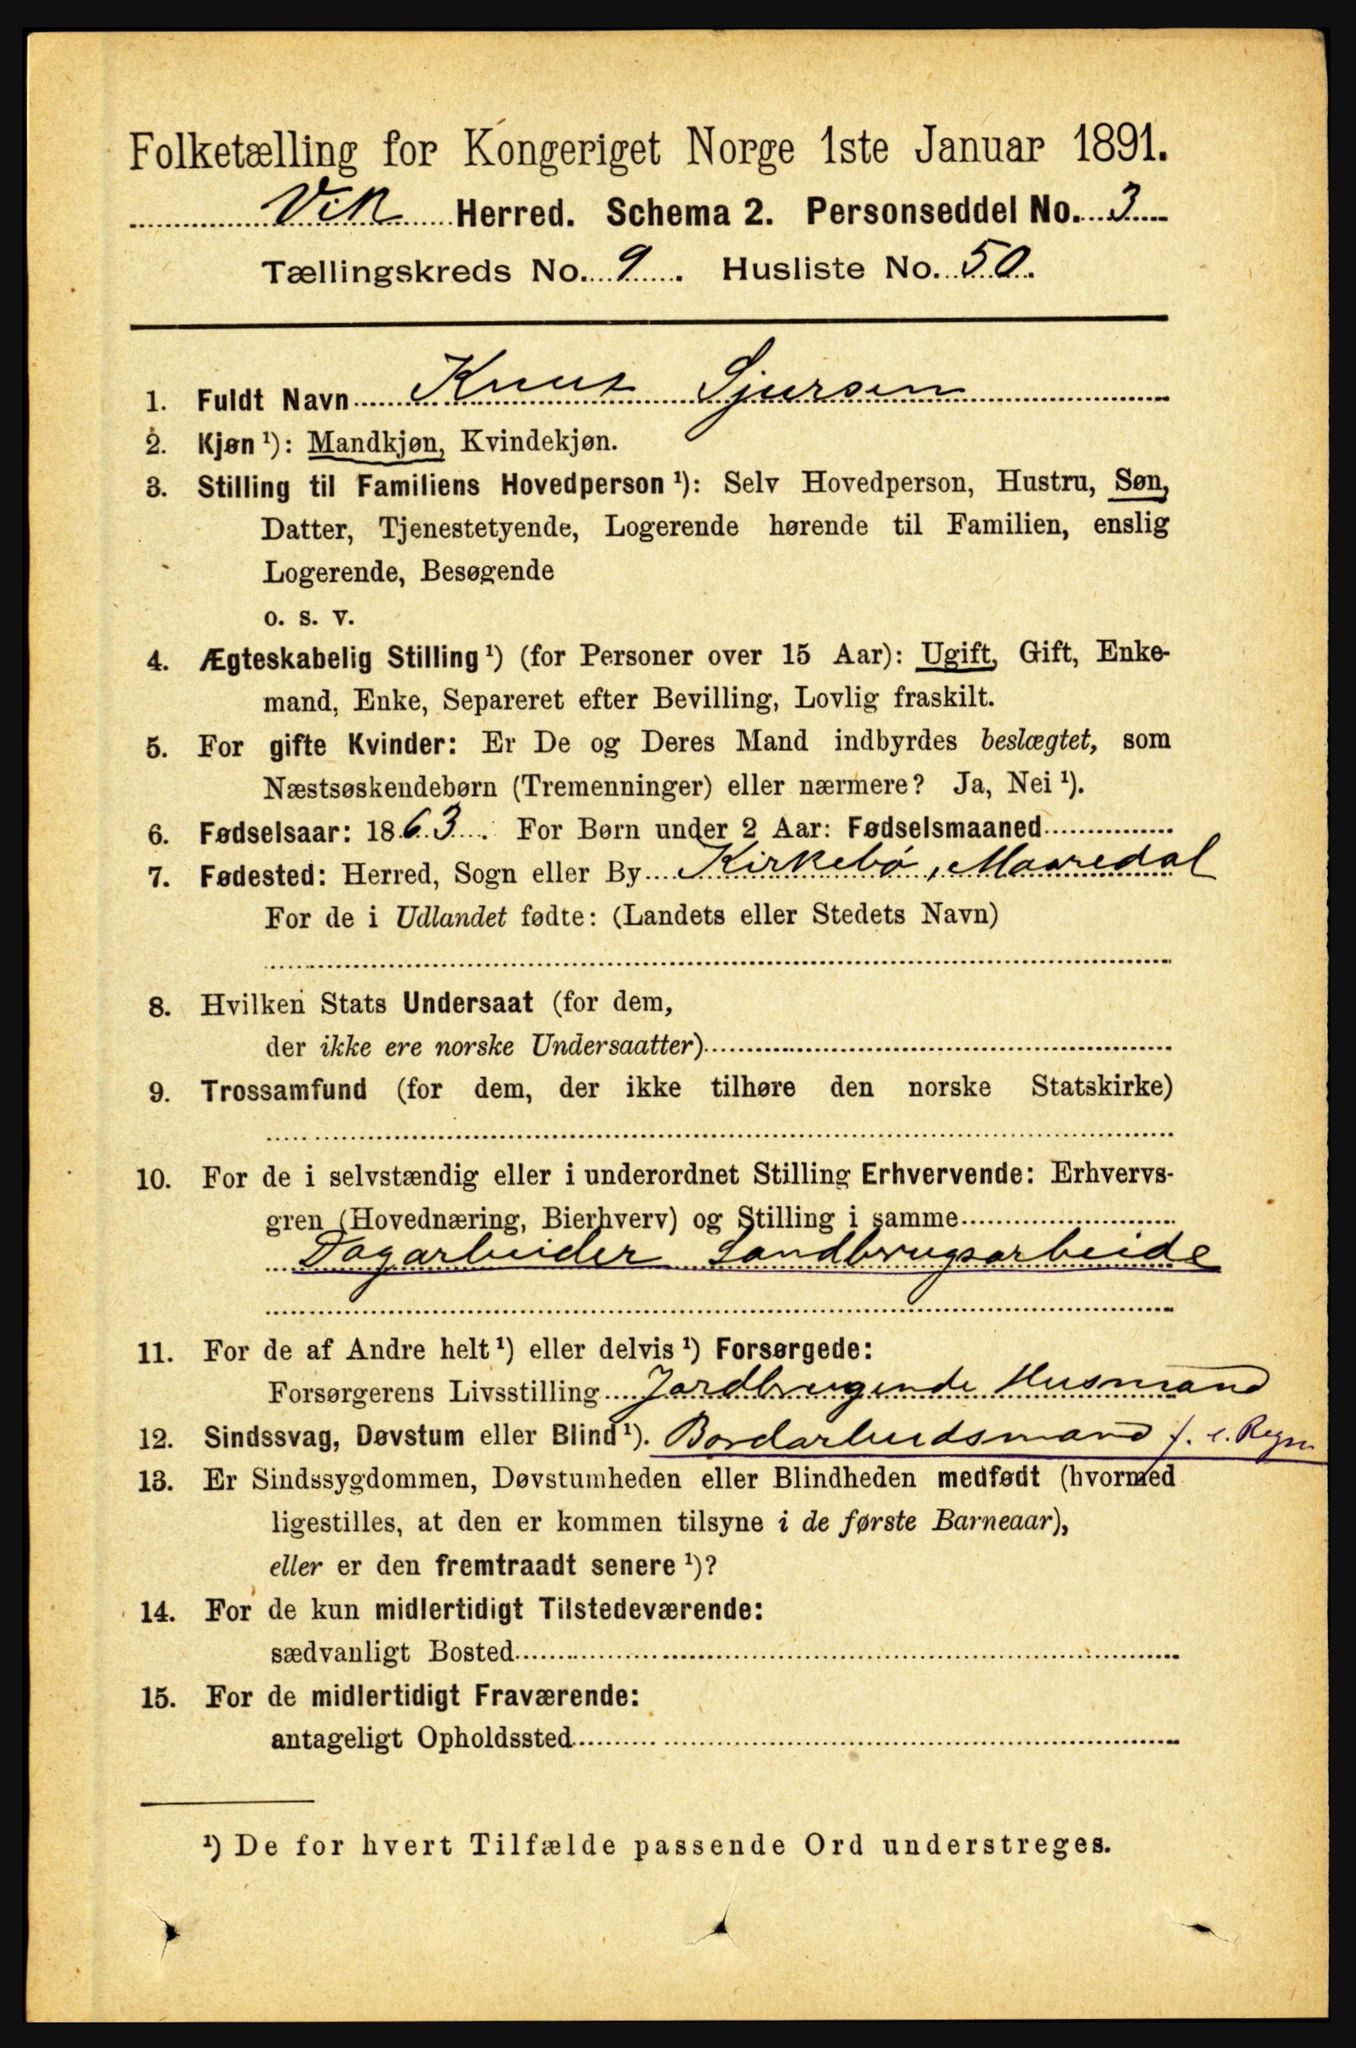 Folketælling for Kongeriget Norge 1ste Januar 1891.
Vik Herred. Schema 2. Personseddel No. 3
Tællingskreds No. 9. Husliste No. 50.
1. Fuldt Navn Knut Sjursen
2. Kjøn ¹): Mandkjøn, Kvindekjøn.
3. Stilling til Familiens Hovedperson ¹): Selv Hovedperson, Hustru, Søn,
Datter, Tjenestetyende, Logerende hørende til Familien, enslig
Logerende, Besøgende
o. s. v.
4. Ægteskabelig Stilling ¹) (for Personer over 15 Aar): Ugift, Gift, Enke-
mand, Enke, Separeret efter Bevilling, Lovlig fraskilt.
5. For gifte Kvinder: Er De og Deres Mand indbyrdes beslægtet, som
Næstsøskendebørn (Tremenninger) eller nærmere? Ja, Nei ¹).
6. Fødselsaar: 1863. For Børn under 2 Aar: Fødselsmaaned
7. Fødested: Herred, Sogn eller By Kirkebø, Maaredal
For de i Udlandet fødte: (Landets eller Stedets Navn)
8. Hvilken Stats Undersaat (for dem,
der ikke ere norske Undersaatter)
9. Trossamfund (for dem, der ikke tilhøre den norske Statskirke)
10. For de i selvstændig eller i underordnet Stilling Erhvervende: Erhvervs-
gren (Hovednæring, Bierhverv) og Stilling i samme
Dagarbeider Landbrugsarbeide
11. For de af Andre helt ¹) eller delvis ¹) Forsørgede:
Forsørgerens Livsstilling Jordbrugende Husmand
12. Sindssvag, Døvstum eller Blind ¹). f. e. Regn
13. Er Sindssygdommen, Døvstumheden eller Blindheden medfødt (hvormed
ligestilles, at den er kommen tilsyne i de første Barneaar),
eller er den fremtraadt senere ¹)?
14. For de kun midlertidigt Tilstedeværende:
sædvanligt Bosted
15. For de midlertidigt Fraværende:
antageligt Opholdssted
¹) De for hvert Tilfælde passende Ord understreges.